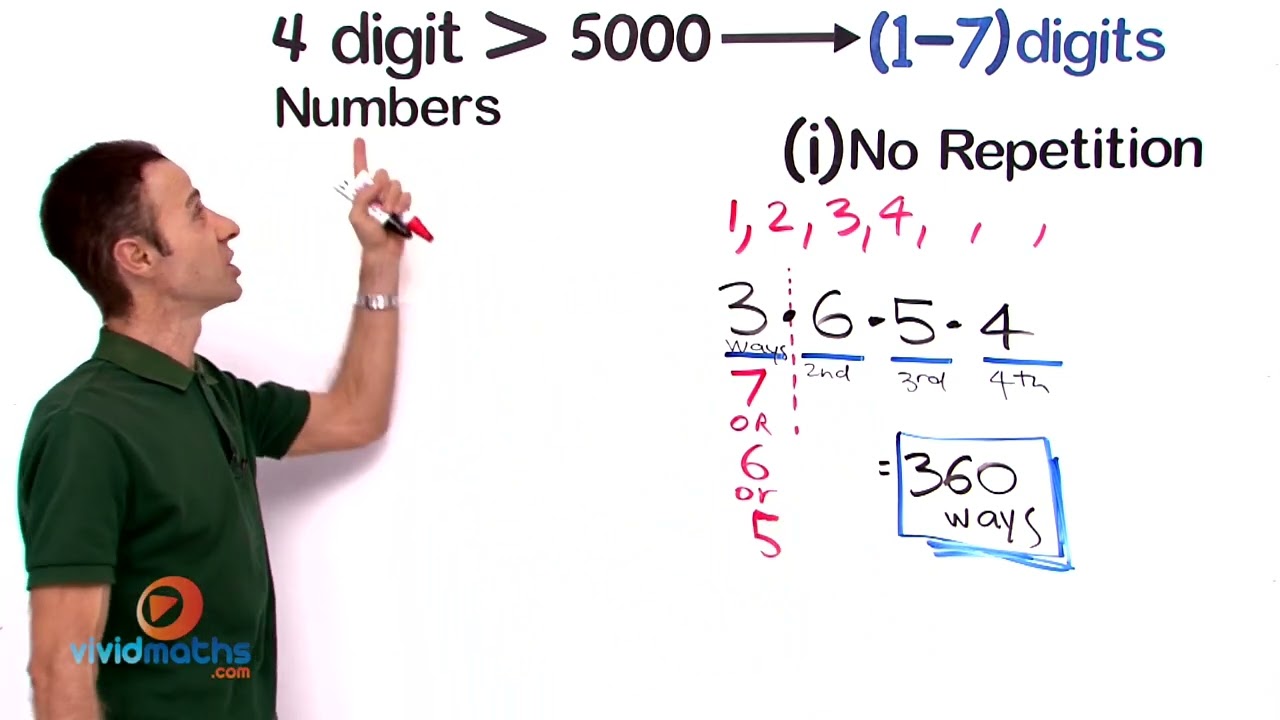 4 digit > 5000 → (1-7) digits
Numbers
(i) No Repetition
1, 2, 3, 4, , ,
3 · 6 · 5 · 4
ways 2nd 3rd 4th
7
OR
6
or
5
= 360
ways
vividmaths
.com